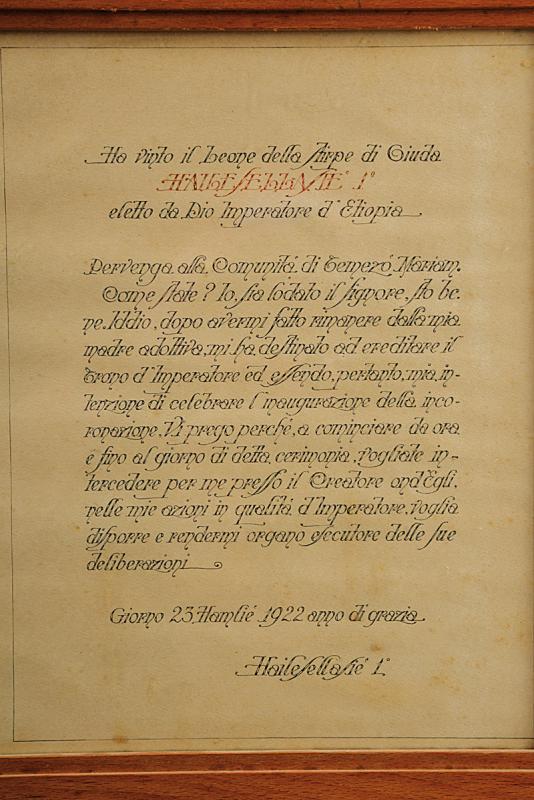 Ha vinto il Leone della Stirpe di Giuda
HAILESELLASIE' 1°
eletto da Dio Imperatore d'Etiopia
Pervenga alla Comunitá di Gemezó Mariam.
Come state? Io, sia lodato il Signore, sto be-
ne. Iddio, dopo avermi fatto rimanere dalla mia
madre adottiva, mi ha destinato ad ereditare il
trono d'Imperatore ed essendo, pertanto, mia in-
tenzione di celebrare l'inaugurazione della inco-
ronazione, Vi prego perché, a cominciare da ora
e fino al giorno di detta cerimonia, vogliate in-
tercedere per me presso il Creatore ond'Egli,
nelle mie azioni in qualitá d'Imperatore, voglia
disporre e rendermi organo esecutore delle sue
deliberazioni
Giorno 23 Hamlié 1922 anno di grazia
Hailesellasié 1°